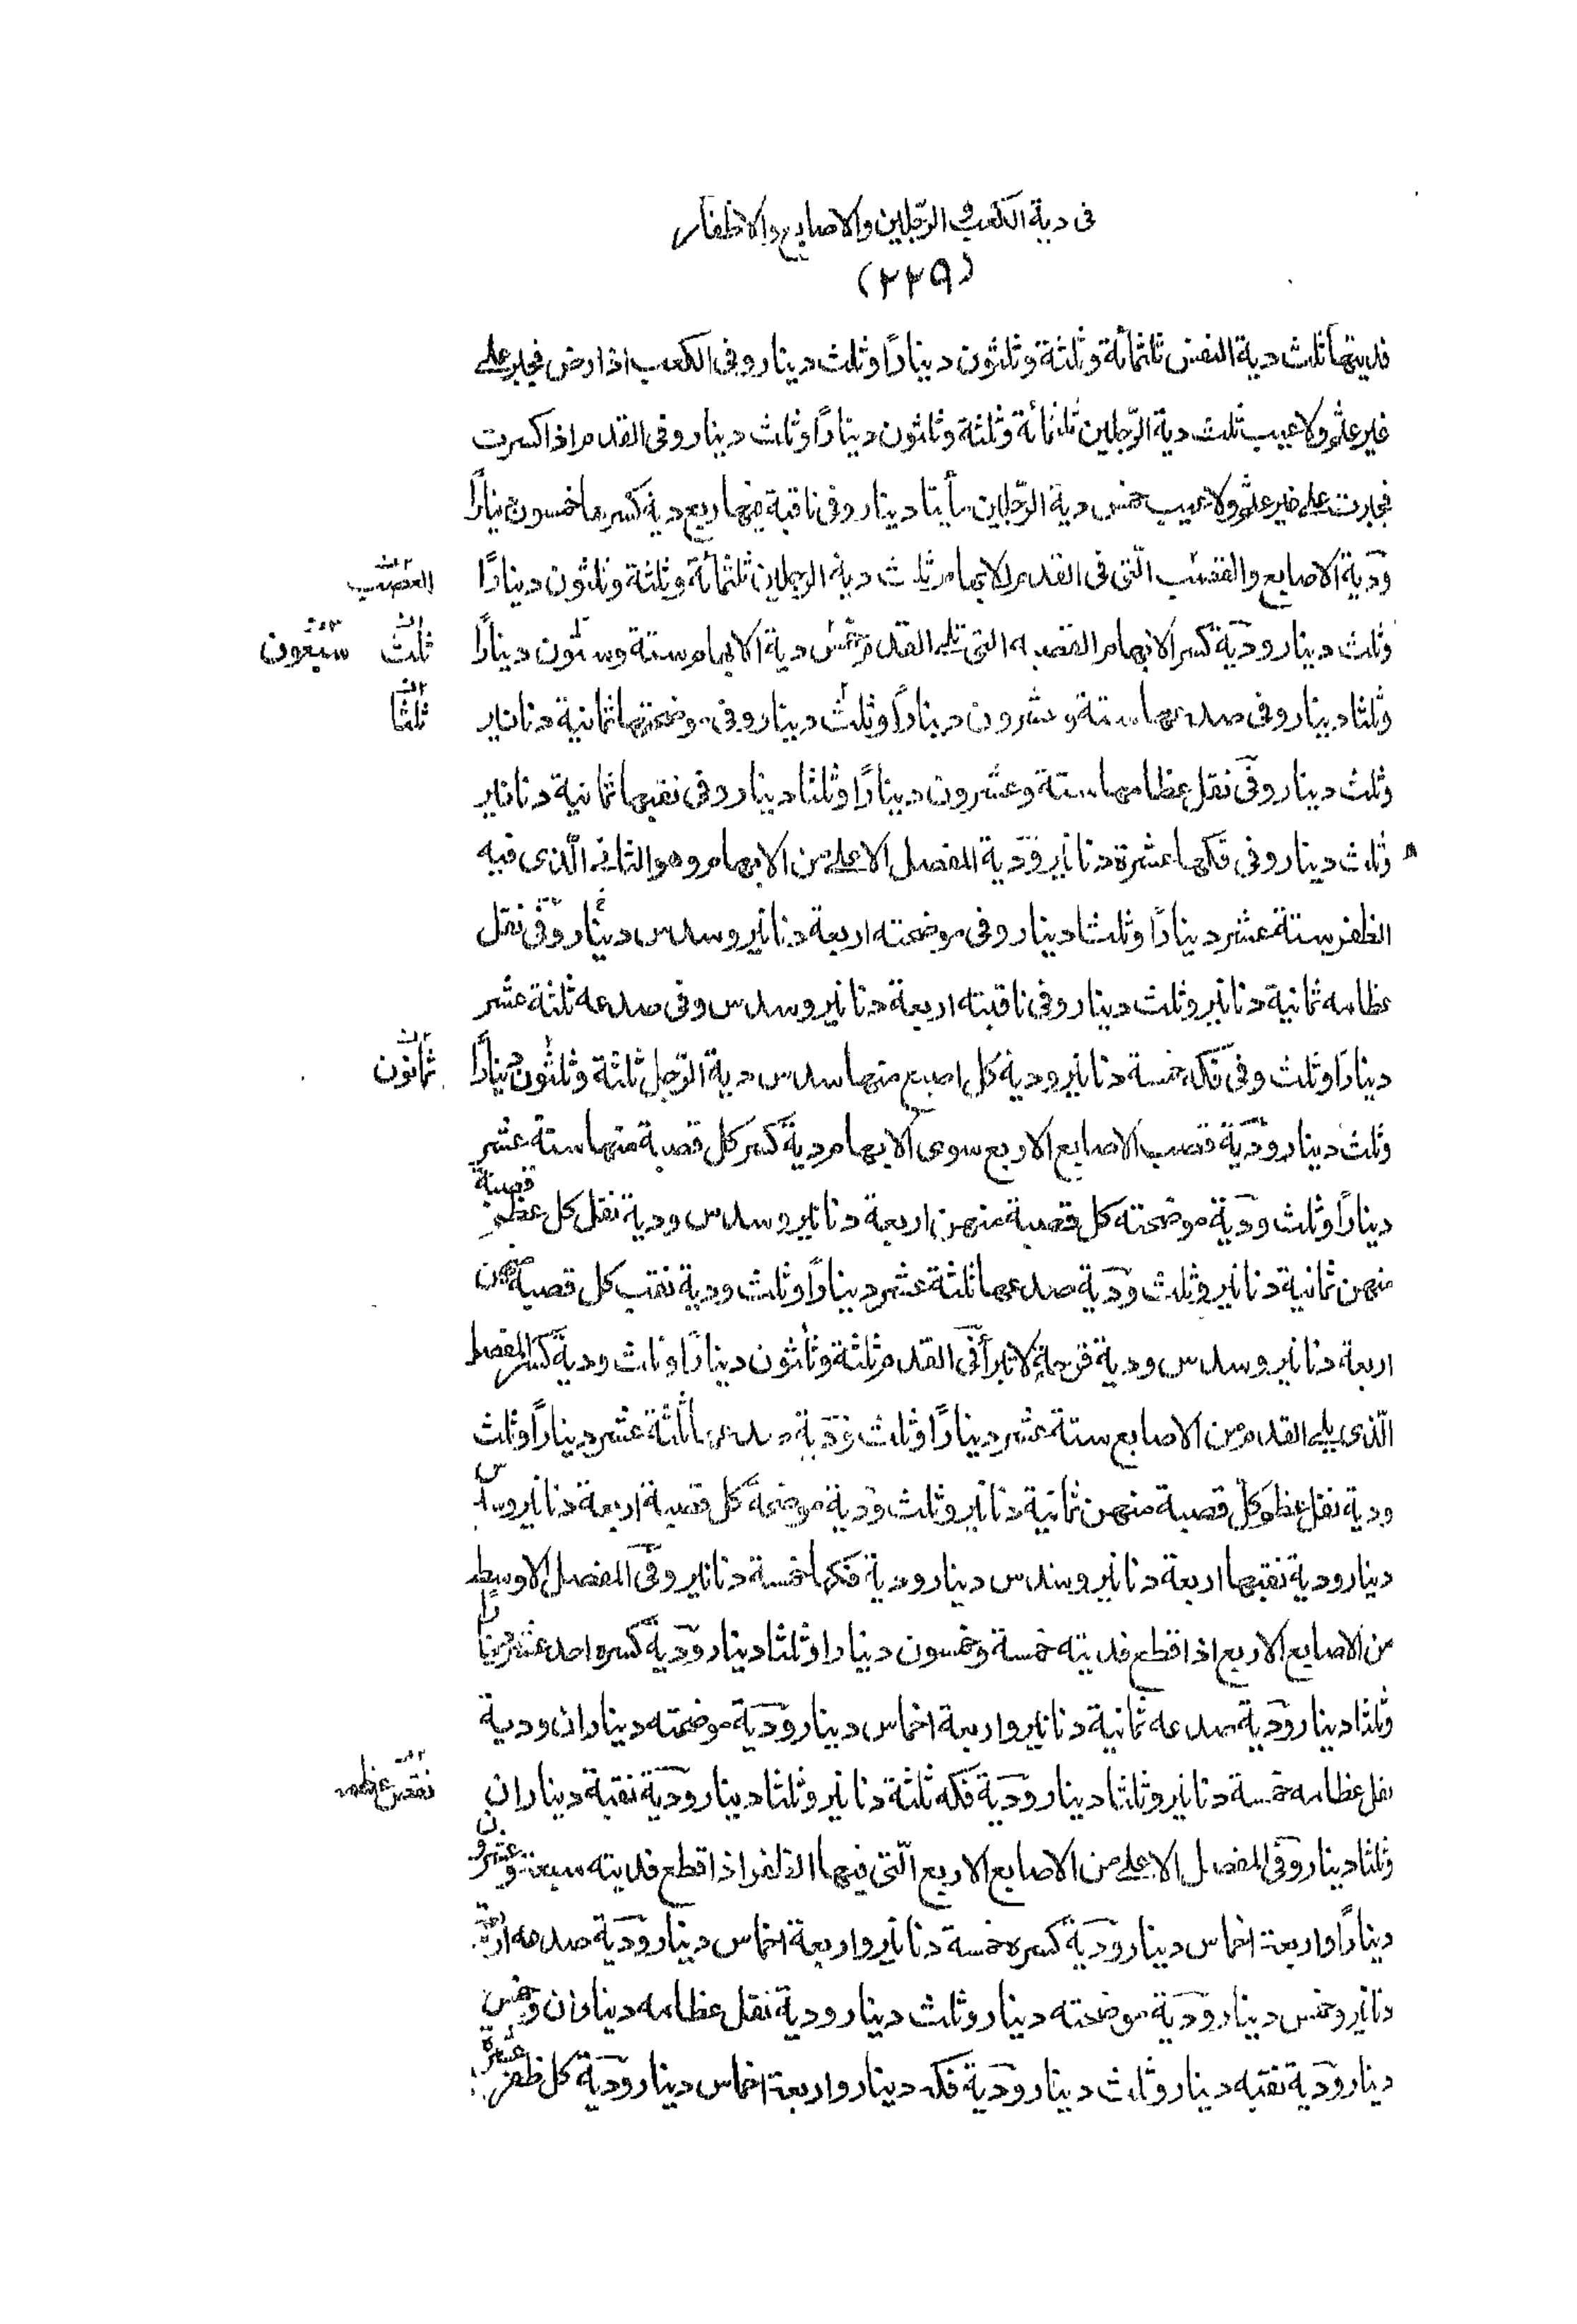 فى دية الكعب و الرّجلين والاصابع والاظفار
(٢٢٩)
فديتها ثلث دية النفس ثلثمائة وثلثة وثلثون دينارًا وثلث دينار وفى الكعب اذا رض فجبر على
غير عثم ولا عيب ثلث دية الرّجلين ثلثمائة وثلثة وثلثون دينارًا وثلث دينار وفى القدم اذا كسرت
فجبرت على غير عثم ولا عيب خمس دية الرّجلين مأيتا دينار وفى ناقبة فيها ربع دية كسرها خمسون دينارًا
ودية الاصابع والقصب الّتى فى القدم الابهام ثلث دية الرجلين ثلثمائة وثلثة وثلثون دينارًا
العصب
وثلث دينار ودية كسر الابهام القصبه التى تلى القدم خمس دية الابهام ستة وستون دينارًا
ثلث سبعون
وثلثا دينار وفى صدعها ستة وعشرون دينارًا وثلث دينار وفى موضحتها ثمانية دنانير
ثلثا
وثلث دينار وفى نقل عظامها ستة وعشرون دينارًا وثلثا دينار وفى نقبها ثمانية دنانير
وثلث دينار وفى فكها عشرة دنانير ودية المفصل الاعلى من الابهام وهو الثانى الّذى فيه
الظفر ستة عشر دينارًا وثلثا دينار وفى موضحته اربعة دنانير وسدس دينار وفى نقل
عظامه ثمانية دنانير وثلث دينار وفى ناقبته اربعة دنانير وسدس وفى صدعه ثلثة عشر
دينارًا وثلث وفى فكه خمسة دنانير ودية كل اصبع منها سدس دية الرّجل ثلثة وثلثون دينارًا
ثمانون
وثلث دينار ودية قصب الاصابع الاربع سوى الابهام دية كسر كل قصبة منها ستة عشر
دينارًا وثلث ودية موضحته كل قصبة منهن اربعة دنانير وسدس ودية نقل كل عظم قصبة
منهن ثمانية دنانير وثلث ودية صدعها ثلثة عشر دينارًا وثلث ودية نقب كل قصبة منهن
اربعة دنانير وسدس ودية قرحة لا تبرأ فى القدم ثلثة وثلثون دينارًا وثلث ودية كسر المفصل
الّذى يلى القدم من الاصابع ستة عشر دينارًا وثلث ودية صدعها ثلثة عشر دينارًا وثلث
ودية نقل عظم كل قصبة منهن ثمانية دنانير وثلث ودية موضحة كل قصبة اربعة دنانير وسدس
دينار ودية نقبها اربعة دنانير وسدس دينار ودية فكها خمسة دنانير وفى المفصل الاوسط
من الاصابع الاربع اذا قطع فديته خمسة وخمسون دينارا وثلثا دينار ودية كسره احد عشر دينارًا
وثلثا دينار ودية صدعه ثمانية دنانير واربعة اخماس دينار ودية موضحته ديناران ودية
نقل عظامه خمسة دنانير وثلثا دينار ودية فكه ثلثة دنانير وثلثا دينار ودية نقبة ديناران
وثلثا دينار وفى المفصل الاعلى من الاصابع الاربع الّتى فيها الظفر اذا قطع فديته سبعة وعشرون
دينارًا واربعة اخماس دينار ودية كسره خمسة دنانير واربعة اخماس دينار ودية صدعه اربعة
دنانير وخمس دينار ودية موضحته دينار وثلث دينار ودية نقل عظامه ديناران وخمس
دينار ودية نقبه دينار وثلث دينار ودية فكه دينار واربعة اخماس دينار ودية كل ظفر عشرة